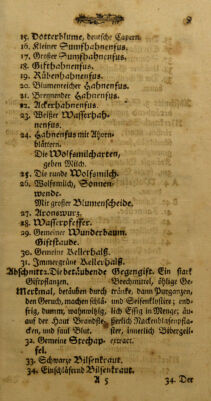 15. Dotterblume, deutsche Capern.
16. Kleiner Sumfhahnenfus.
17. Großer Sumfhahnenfus.
18. Gifthahnenfus.
19. Rübenhahnenfus.
20. Blumenreicher Hahnenfus.
21. Brennender Hahnenfus.
22. Ackerhahnenfus.
23. Weißer Wasserhah-
nenfus.
24. Hahnenfus mit Ahorn-
blättern.
Die Wolfsmilcharten,
geben Milch.
25. Die runde Wolfsmilch.
26. Wolfsmilch, Sonnen-
wende.
Mit großer Blumenscheide.
27. Aronswurz.
28. Wasserpfeffer.
29. Gemeiner Wunderbaum.
Giftstaude.
30. Gemeine Kellerhalß.
31. Immergrüne Kellerhalß.
Abschnitt. Die betäubende Gegengift. Ein stark
Giftpflanzen. Brechmittel, öhlige Ge-
Merkmal, betäuben durch tränke, dann Purganzen,
den Geruch, machen schlä- und Seifenklystiere; end-
frig, dumm, wahnwitzig, lich Eßig in Menge; äu-
auf der Haut Brandfle- ßerlich Nackenblasenpfla-
cken, und faul Blut. ster, innerlich Bibergeil.
32. Gemeine Stechap-
fel.
33. Schwarze Bilsenkraut.
34. Einschläfernd Bilsenkraut.
A 5 34. Der